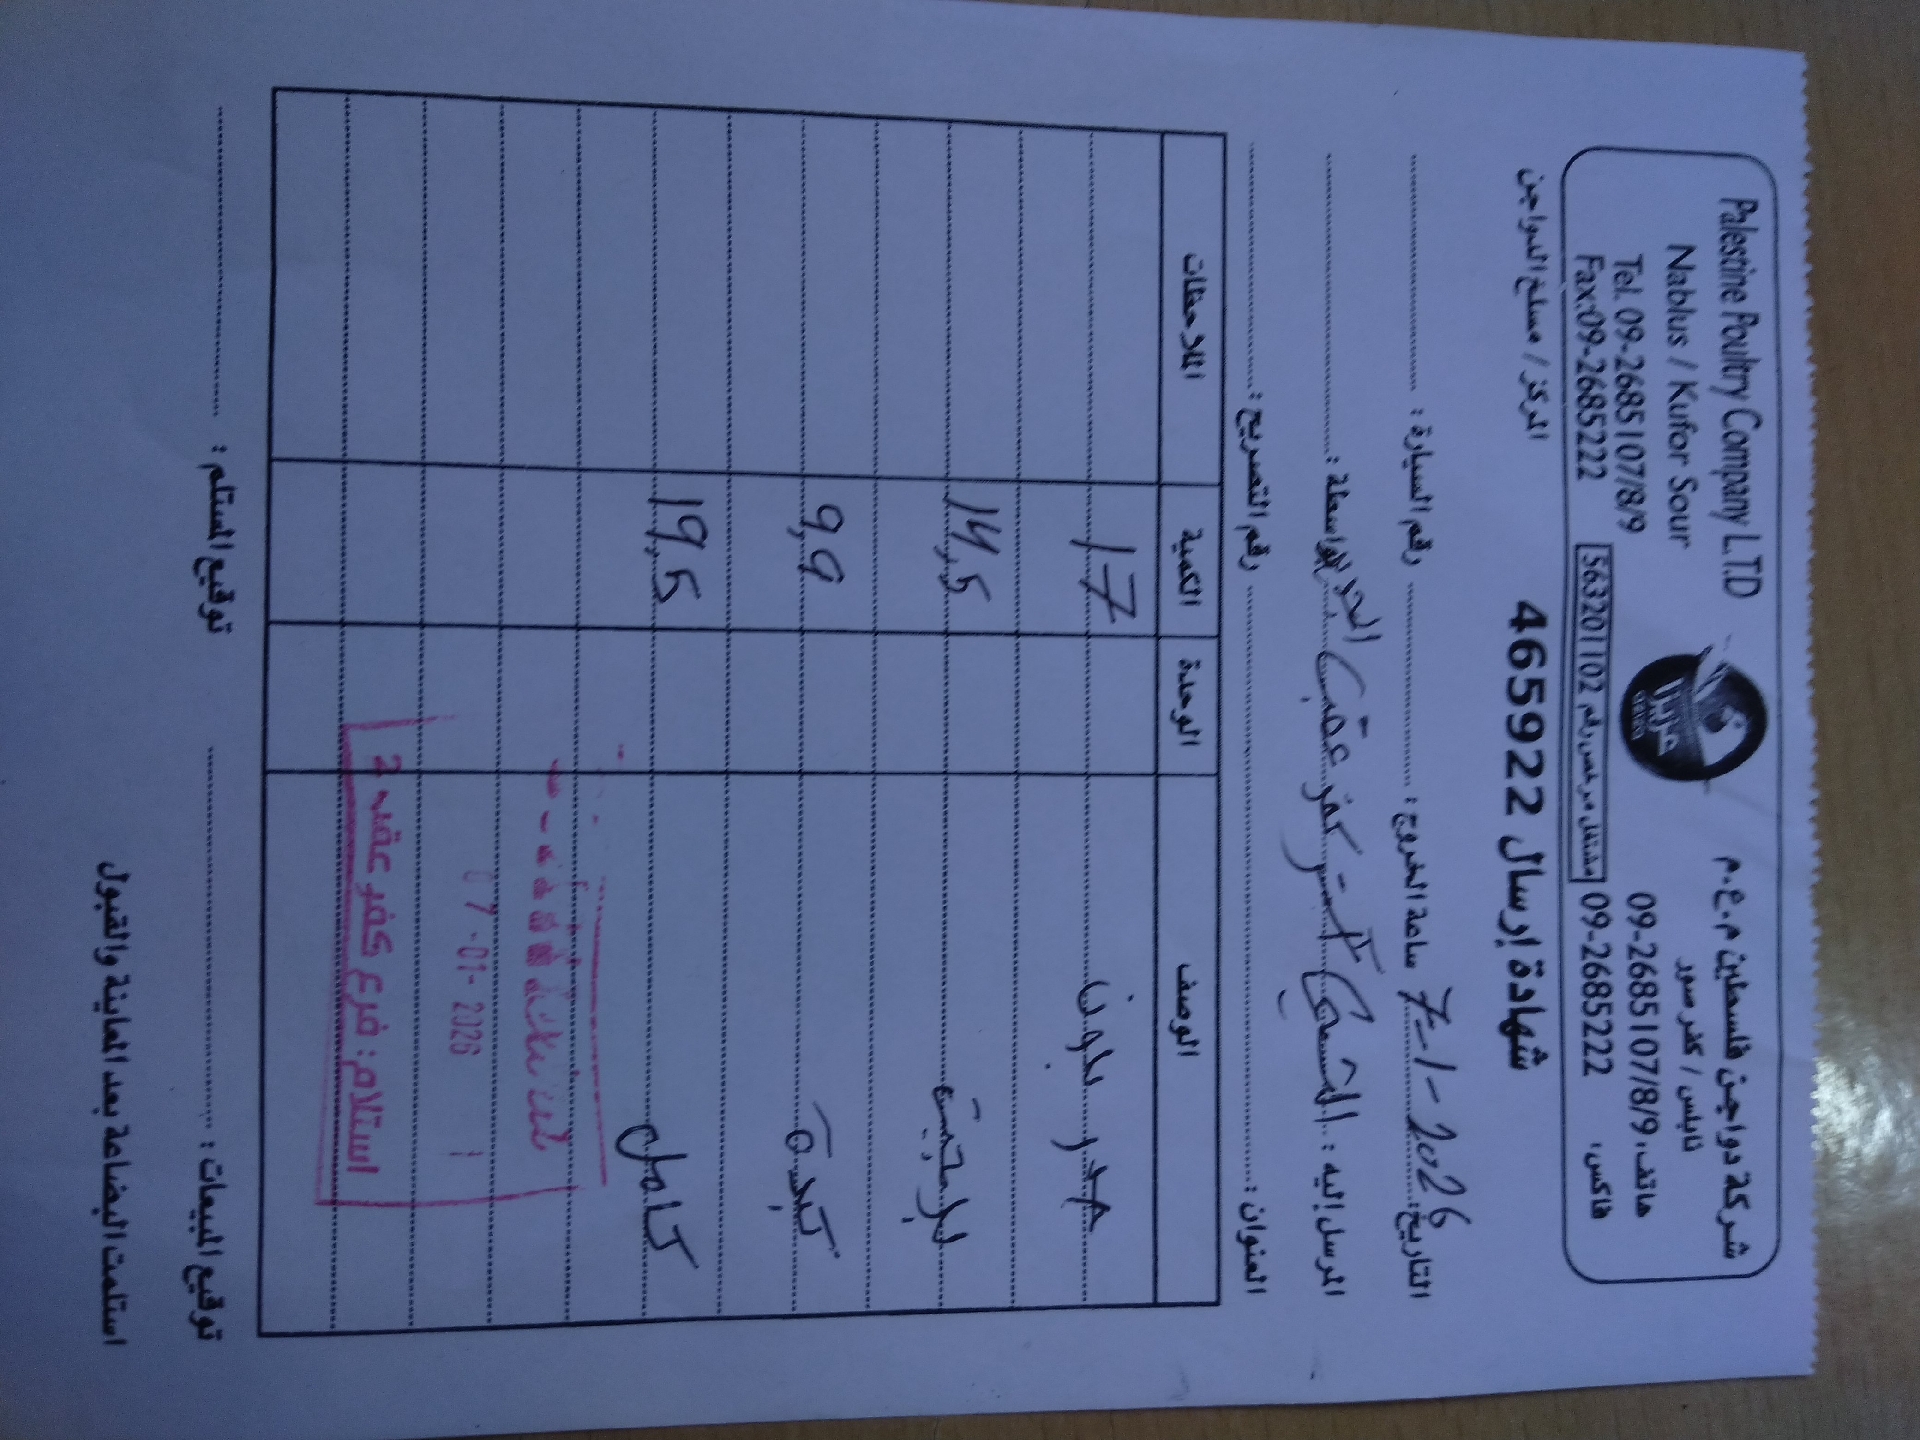 Palestine Poultry Company L.T.D
Nablus / Kufor Sour
Tel. 09-2685107/8/9
Fax:09-2685222
عزيزا
شركة دواجن فلسطين م.ع.م
نابلس / كفر صور
هاتف: 09-2685107/8/9
فاكس: 09-2685222
مشتغل مرخص رقم 563201102
المركز / مسلخ الدواجن
شهادة إرسال 465922
التاريخ: 7-1-2026 ساعة الخروج: رقم السيارة:
المرسل إليه: كفر عقب بواسطة:
العنوان: رقم التصريح:
الوصف الوحدة الكمية الملاحظات
صدر بدون 17
14,5
كبدة 9,9
كامل 19,5
07-01-2026
استلام: فرع كفر عقب 2
توقيع المبيعات: توقيع المستلم:
استلمت البضاعة بعد المعاينة والقبول